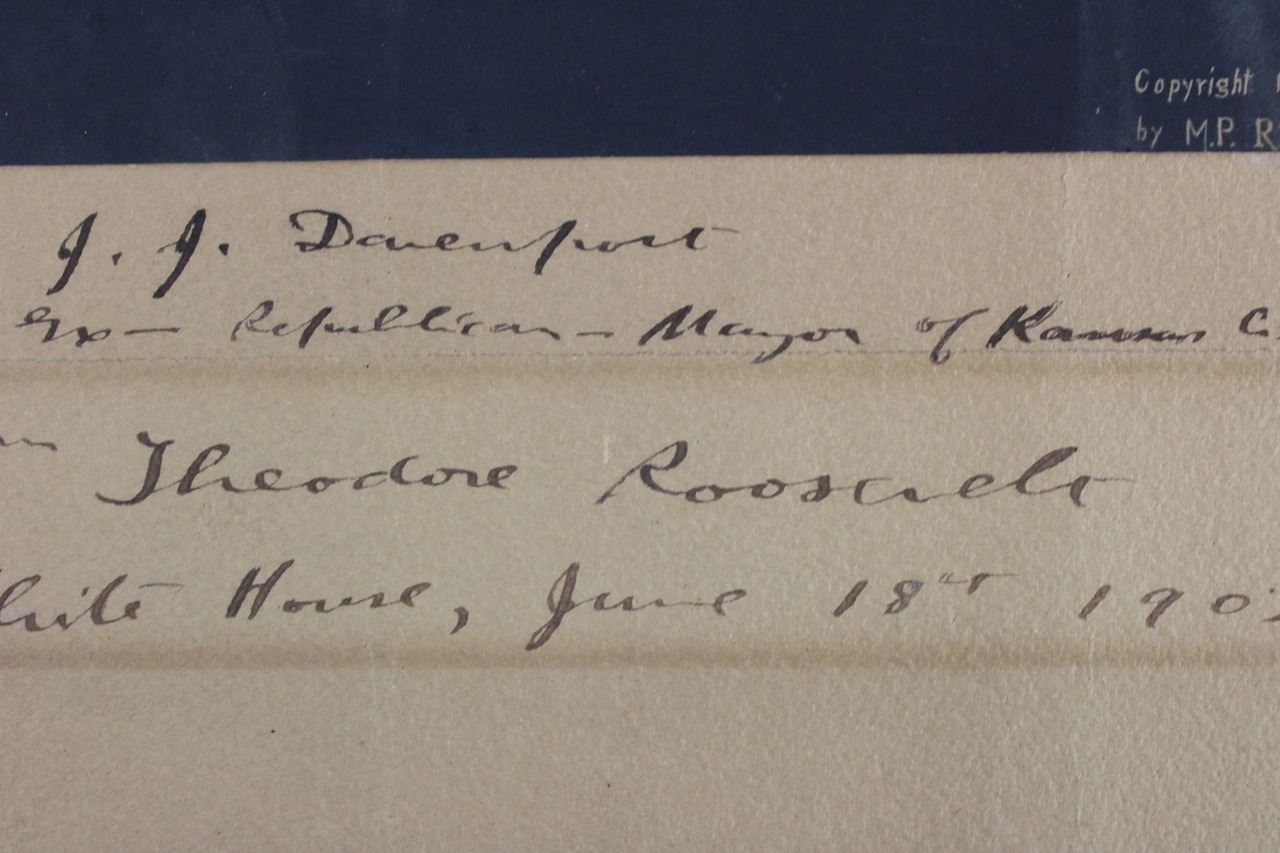 Copyright
by M.P. R
J. J. Davenport
Ex- Republican - Mayor of Kansas C
Theodore Roosevelt
White House, June 18th 190